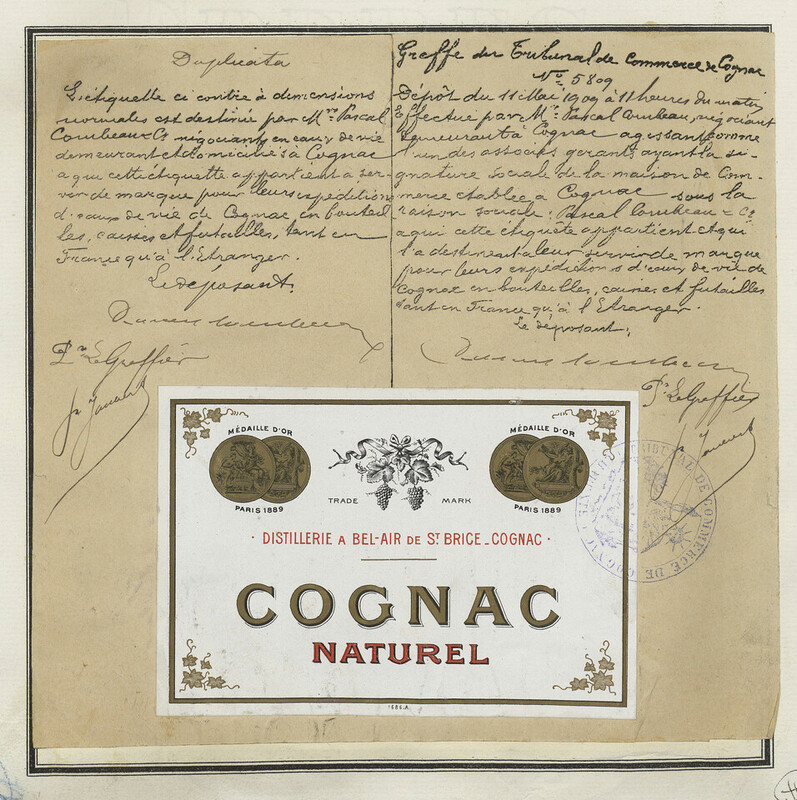 Duplicata
L'étiquette ci contre à dimensions
normales est destinée par Mrs Pascal
Combeau & Cie négociants en eaux de vie
demeurant et domiciliés à Cognac
à qui cette étiquette appartient à ser-
vir de marque pour leurs expéditions
d'eaux de vie de Cognac, en bouteil
les, caisses et futailles, tant en
France qu'à l'Etranger.
Le déposant,
Pr Le Greffier
Greffe du Tribunal de Commerce de Cognac
No 5809
Dépôt du 11 Mai 1909 à 11 heures du matin
Effectué par Mr Pascal Combeau, négociant
demeurant à Cognac agissant comme
l'un des associés gérants ayant la si-
gnature sociale de la maison de Com-
merce établie à Cognac sous la
raison sociale: Pascal Combeau & Cie
a qui cette étiquette appartient et qui
l'a destinent a leur servir de marque
pour leurs expéditions d'eaux de vie de
Cognac en bouteilles, caisses et futailles
tant en France qu'à l'Etranger.
Le déposant,
Pr Le Greffier
MÉDAILLE D'OR
PARIS 1889
TRADE MARK
MÉDAILLE D'OR
PARIS 1889
· DISTILLERIE A BEL-AIR DE ST BRICE_COGNAC ·
COGNAC
NATUREL
1686.A.
TRIBUNAL DE COMMERCE DE COGNAC